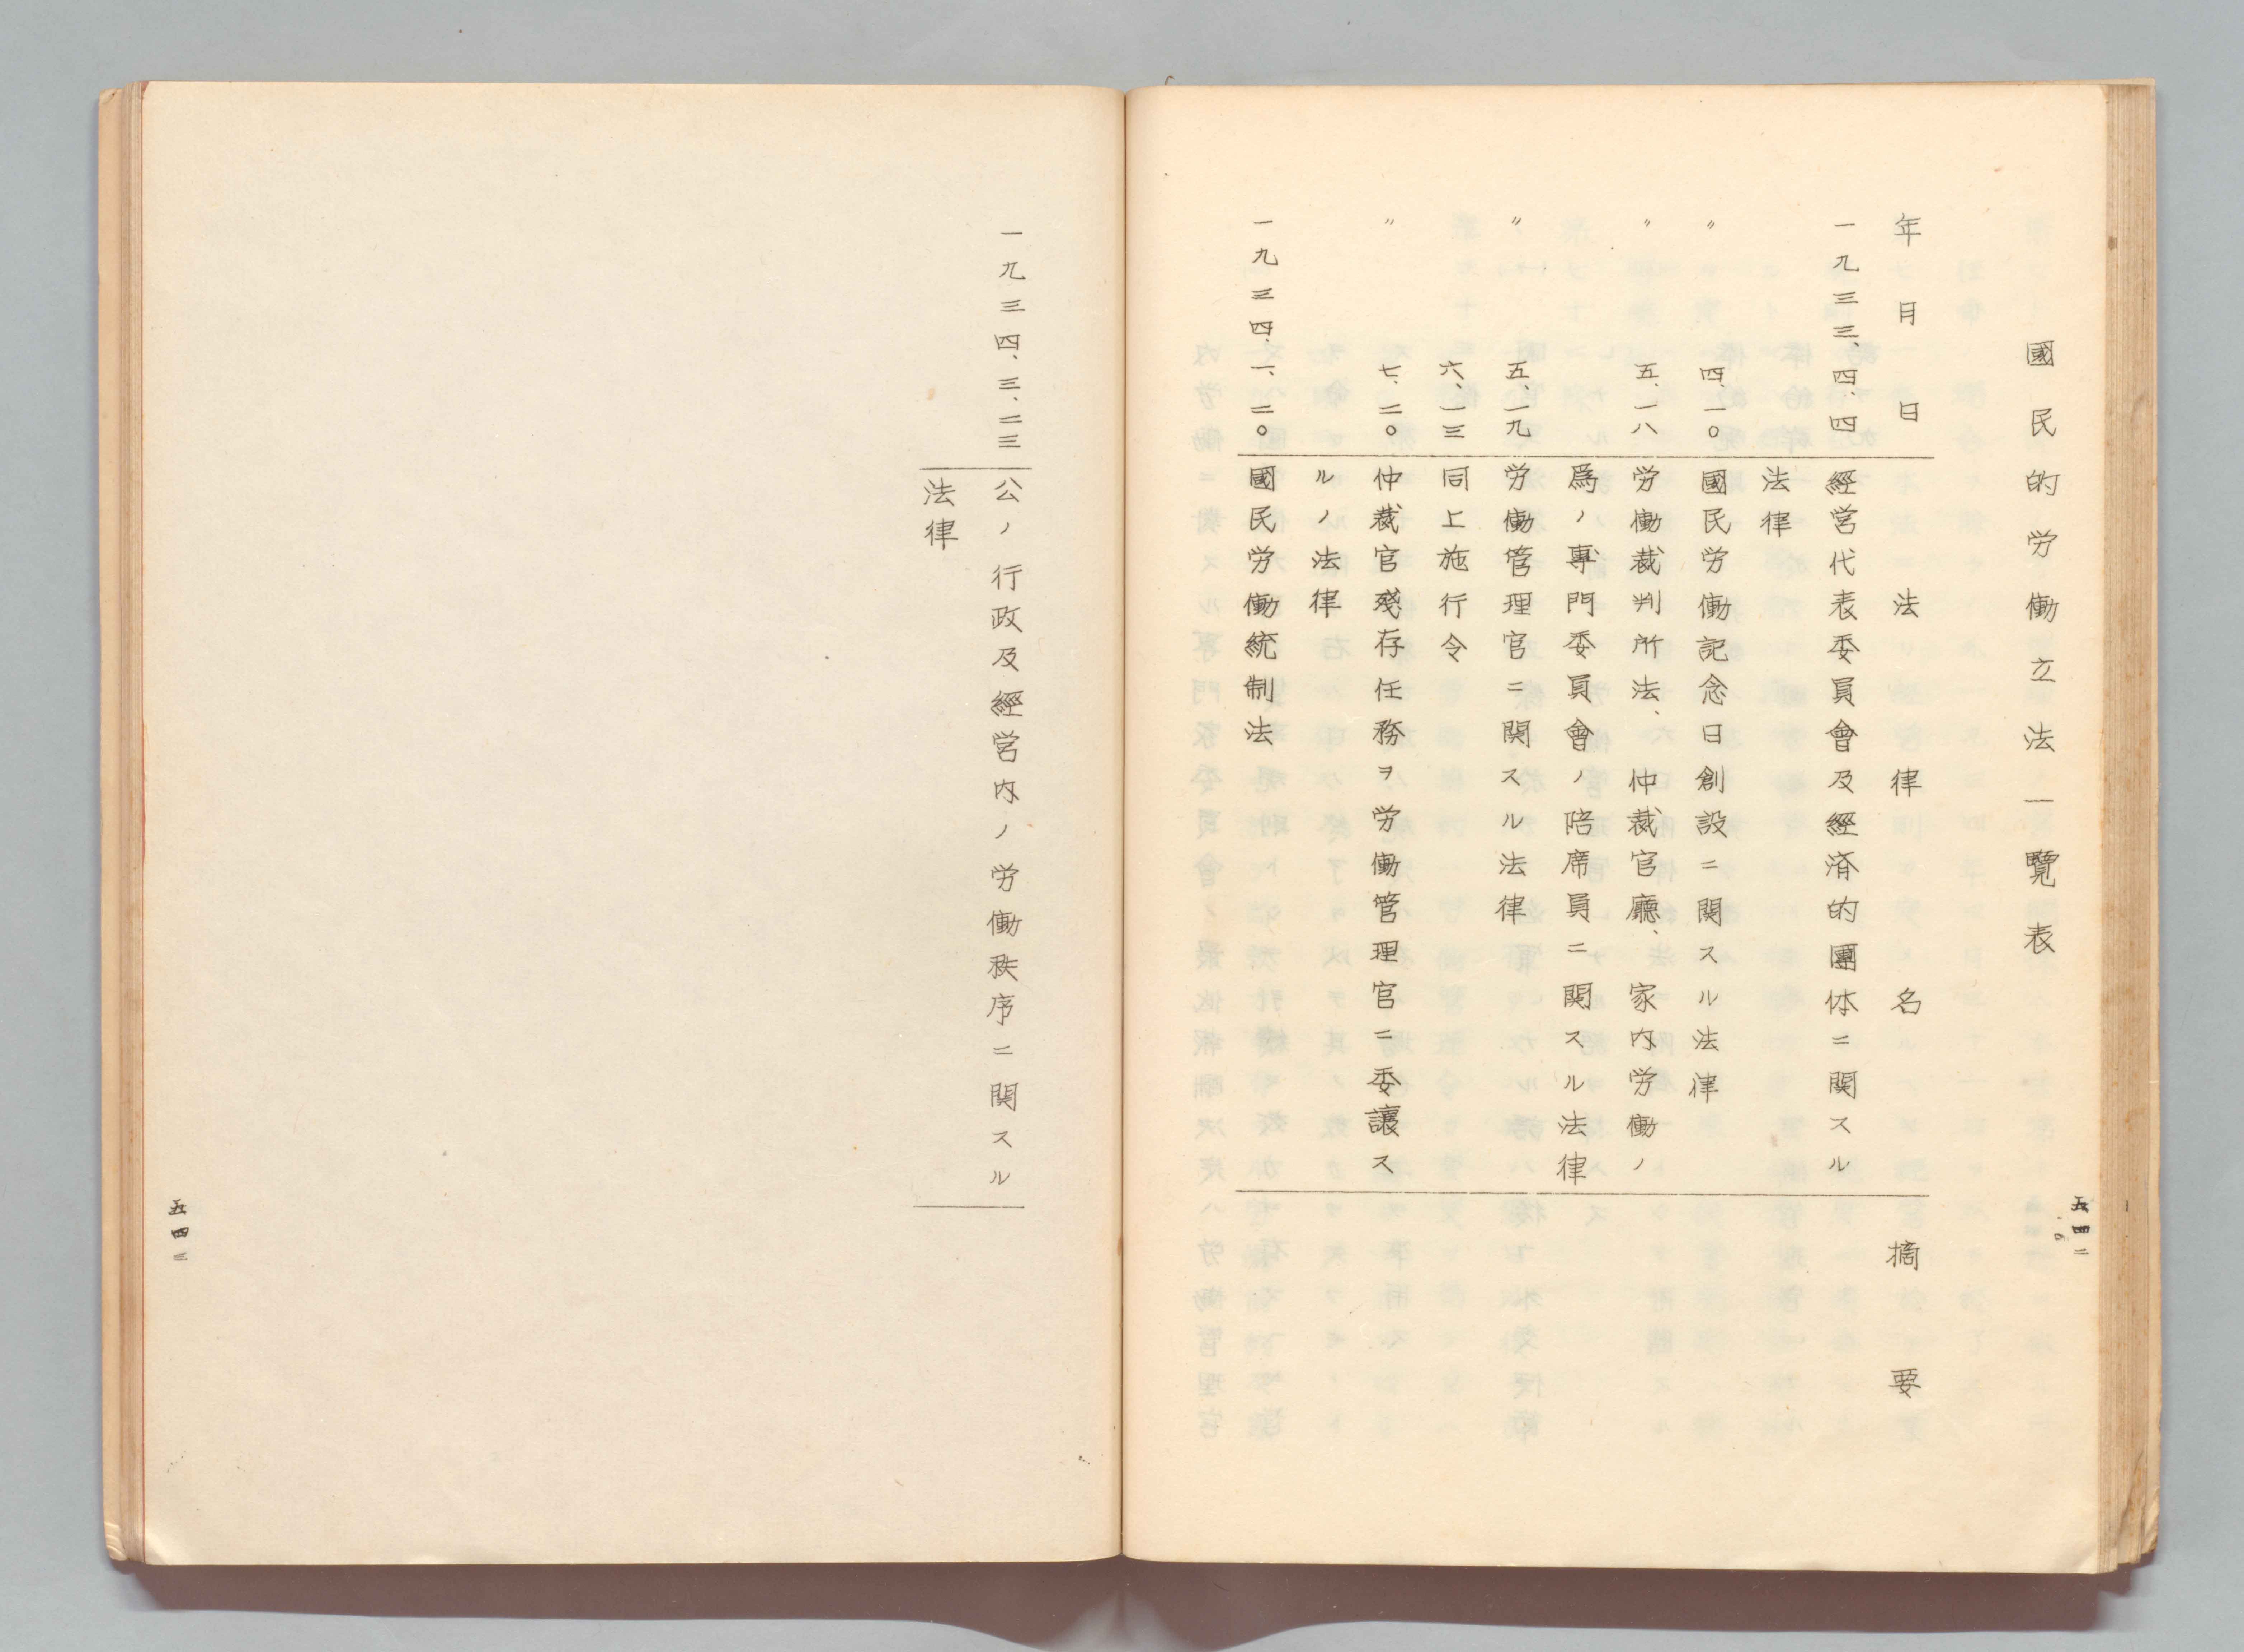 國民的労働立法一覽表
年月日 法律名 摘要
一九三三、四、四 經営代表委員會及經済的團体ニ関スル
法律
〃 四、一〇 國民労働記念日創設ニ関スル法律
〃 五、一八 労働裁判所法、仲裁官廳、家内労働ノ
爲ノ專門委員會ノ陪席員ニ関スル法律
〃 五、一九 労働管理官ニ関スル法律
六、一三 同上施行令
〃 七、二〇 仲裁官残存任務ヲ労働管理官ニ委讓ス
ルノ法律
一九三四、一、二〇 國民労働統制法
五四二
一九三四、三、二三 公ノ行政及經営内ノ労働秩序ニ関スル
法律
五四三